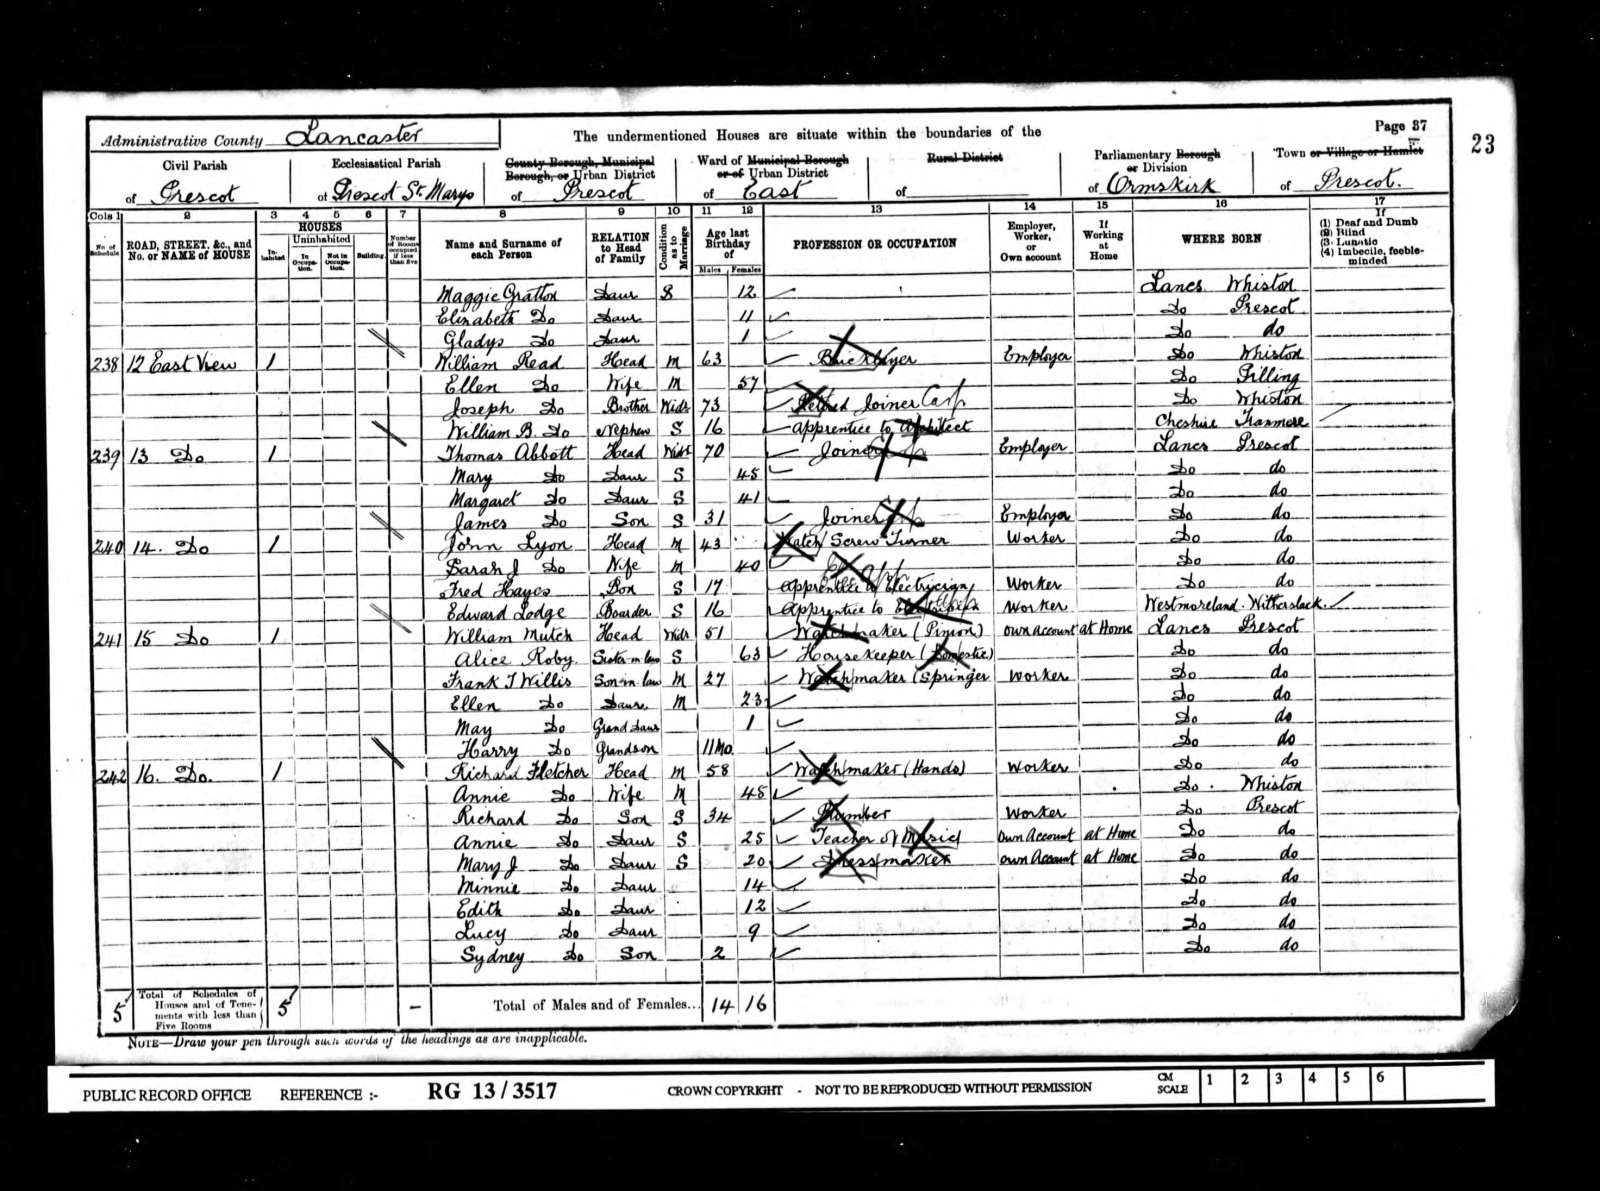 Administrative County Lancaster
The undermentioned Houses are situate within the boundaries of the
Page 37
23
Civil Parish of Prescot
Ecclesiastical Parish of Prescot St. Marys
County Borough, Municipal Borough, or Urban District of Prescot
Ward of Municipal Borough or of Urban District of East
Rural District of
Parliamentary Borough or Division of Ormskirk
Town or Village or Hamlet of Prescot.
Cols 1 2 3 4 5 6 7 8 9 10 11 12 13 14 15 16 17
No. of Schedule
ROAD, STREET, &c., and No. or NAME of HOUSE
HOUSES
Inhabited
Uninhabited
In Occupation.
Not in Occupation.
Building.
Number of Rooms occupied if less than five
Name and Surname of each Person
RELATION to Head of Family
Condition as to Marriage
Age last Birthday of
Males Females
PROFESSION OR OCCUPATION
Employer, Worker, or Own account
If Working at Home
WHERE BORN
If
(1) Deaf and Dumb
(2) Blind
(3) Lunatic
(4) Imbecile, feeble-minded
Maggie Gratton Daur S 12 Lancs Whiston
Elizabeth Do Daur 11 Do Prescot
Gladys Do Daur 1 Do do
238 12 East View 1 William Read Head M 63 Bricklayer Employer Do Whiston
Ellen Do Wife M 57 Do Pilling
Joseph Do Brother Widr 73 Retired Joiner Carp Do Whiston
William B. Do Nephew S 16 apprentice to Architect Cheshire Tranmere
239 13 Do 1 Thomas Abbott Head Widr 70 Joiner Employer Lancs Prescot
Mary Do Daur S 45 Do do
Margaret Do Daur S 41 Do do
James Do Son S 31 Joiner Employer Do do
240 14. Do 1 John Lyon Head M 43 Watch Screw Turner Worker Do do
Sarah J Do Wife M 40 Do do
Fred Hayes Son S 17 Apprentice to Electrician Worker Do do
Edward Lodge Boarder S 16 Apprentice to Worker Westmoreland. Witherslack.
241 15 Do 1 William Mutch Head Widr 51 Watchmaker (Pinion) own account at Home Lancs Prescot
Alice Roby Sister-in-law S 63 Housekeeper (Domestic) Do do
Frank T Willis Son-in-law M 27 Watchmaker (Springer Worker Do do
Ellen Do Daur M 23 Do do
May Do Grand Daur 1 Do do
Harry Do Grandson 11 Mo Do do
242 16. Do. 1 Richard Fletcher Head M 58 Watchmaker (Hands) Worker Do do
Annie Do Wife M 45 Do. Whiston
Richard Do Son S 34 Plumber Worker Do Prescot
Annie Do Daur S 25 Teacher of Music Own Account at Home Do do
Mary J Do Daur S 20 Dressmaker own Account at Home Do do
Minnie Do Daur 14 Do do
Edith Do Daur 12 Do do
Lucy Do Daur 9 Do do
Sydney Do Son 2 Do do
5 Total of Schedules of Houses and of Tenements with less than Five Rooms 5 – Total of Males and of Females... 14 16
NOTE—Draw your pen through such words of the headings as are inapplicable.
PUBLIC RECORD OFFICE REFERENCE :- RG 13/3517 CROWN COPYRIGHT - NOT TO BE REPRODUCED WITHOUT PERMISSION CM SCALE 1 2 3 4 5 6